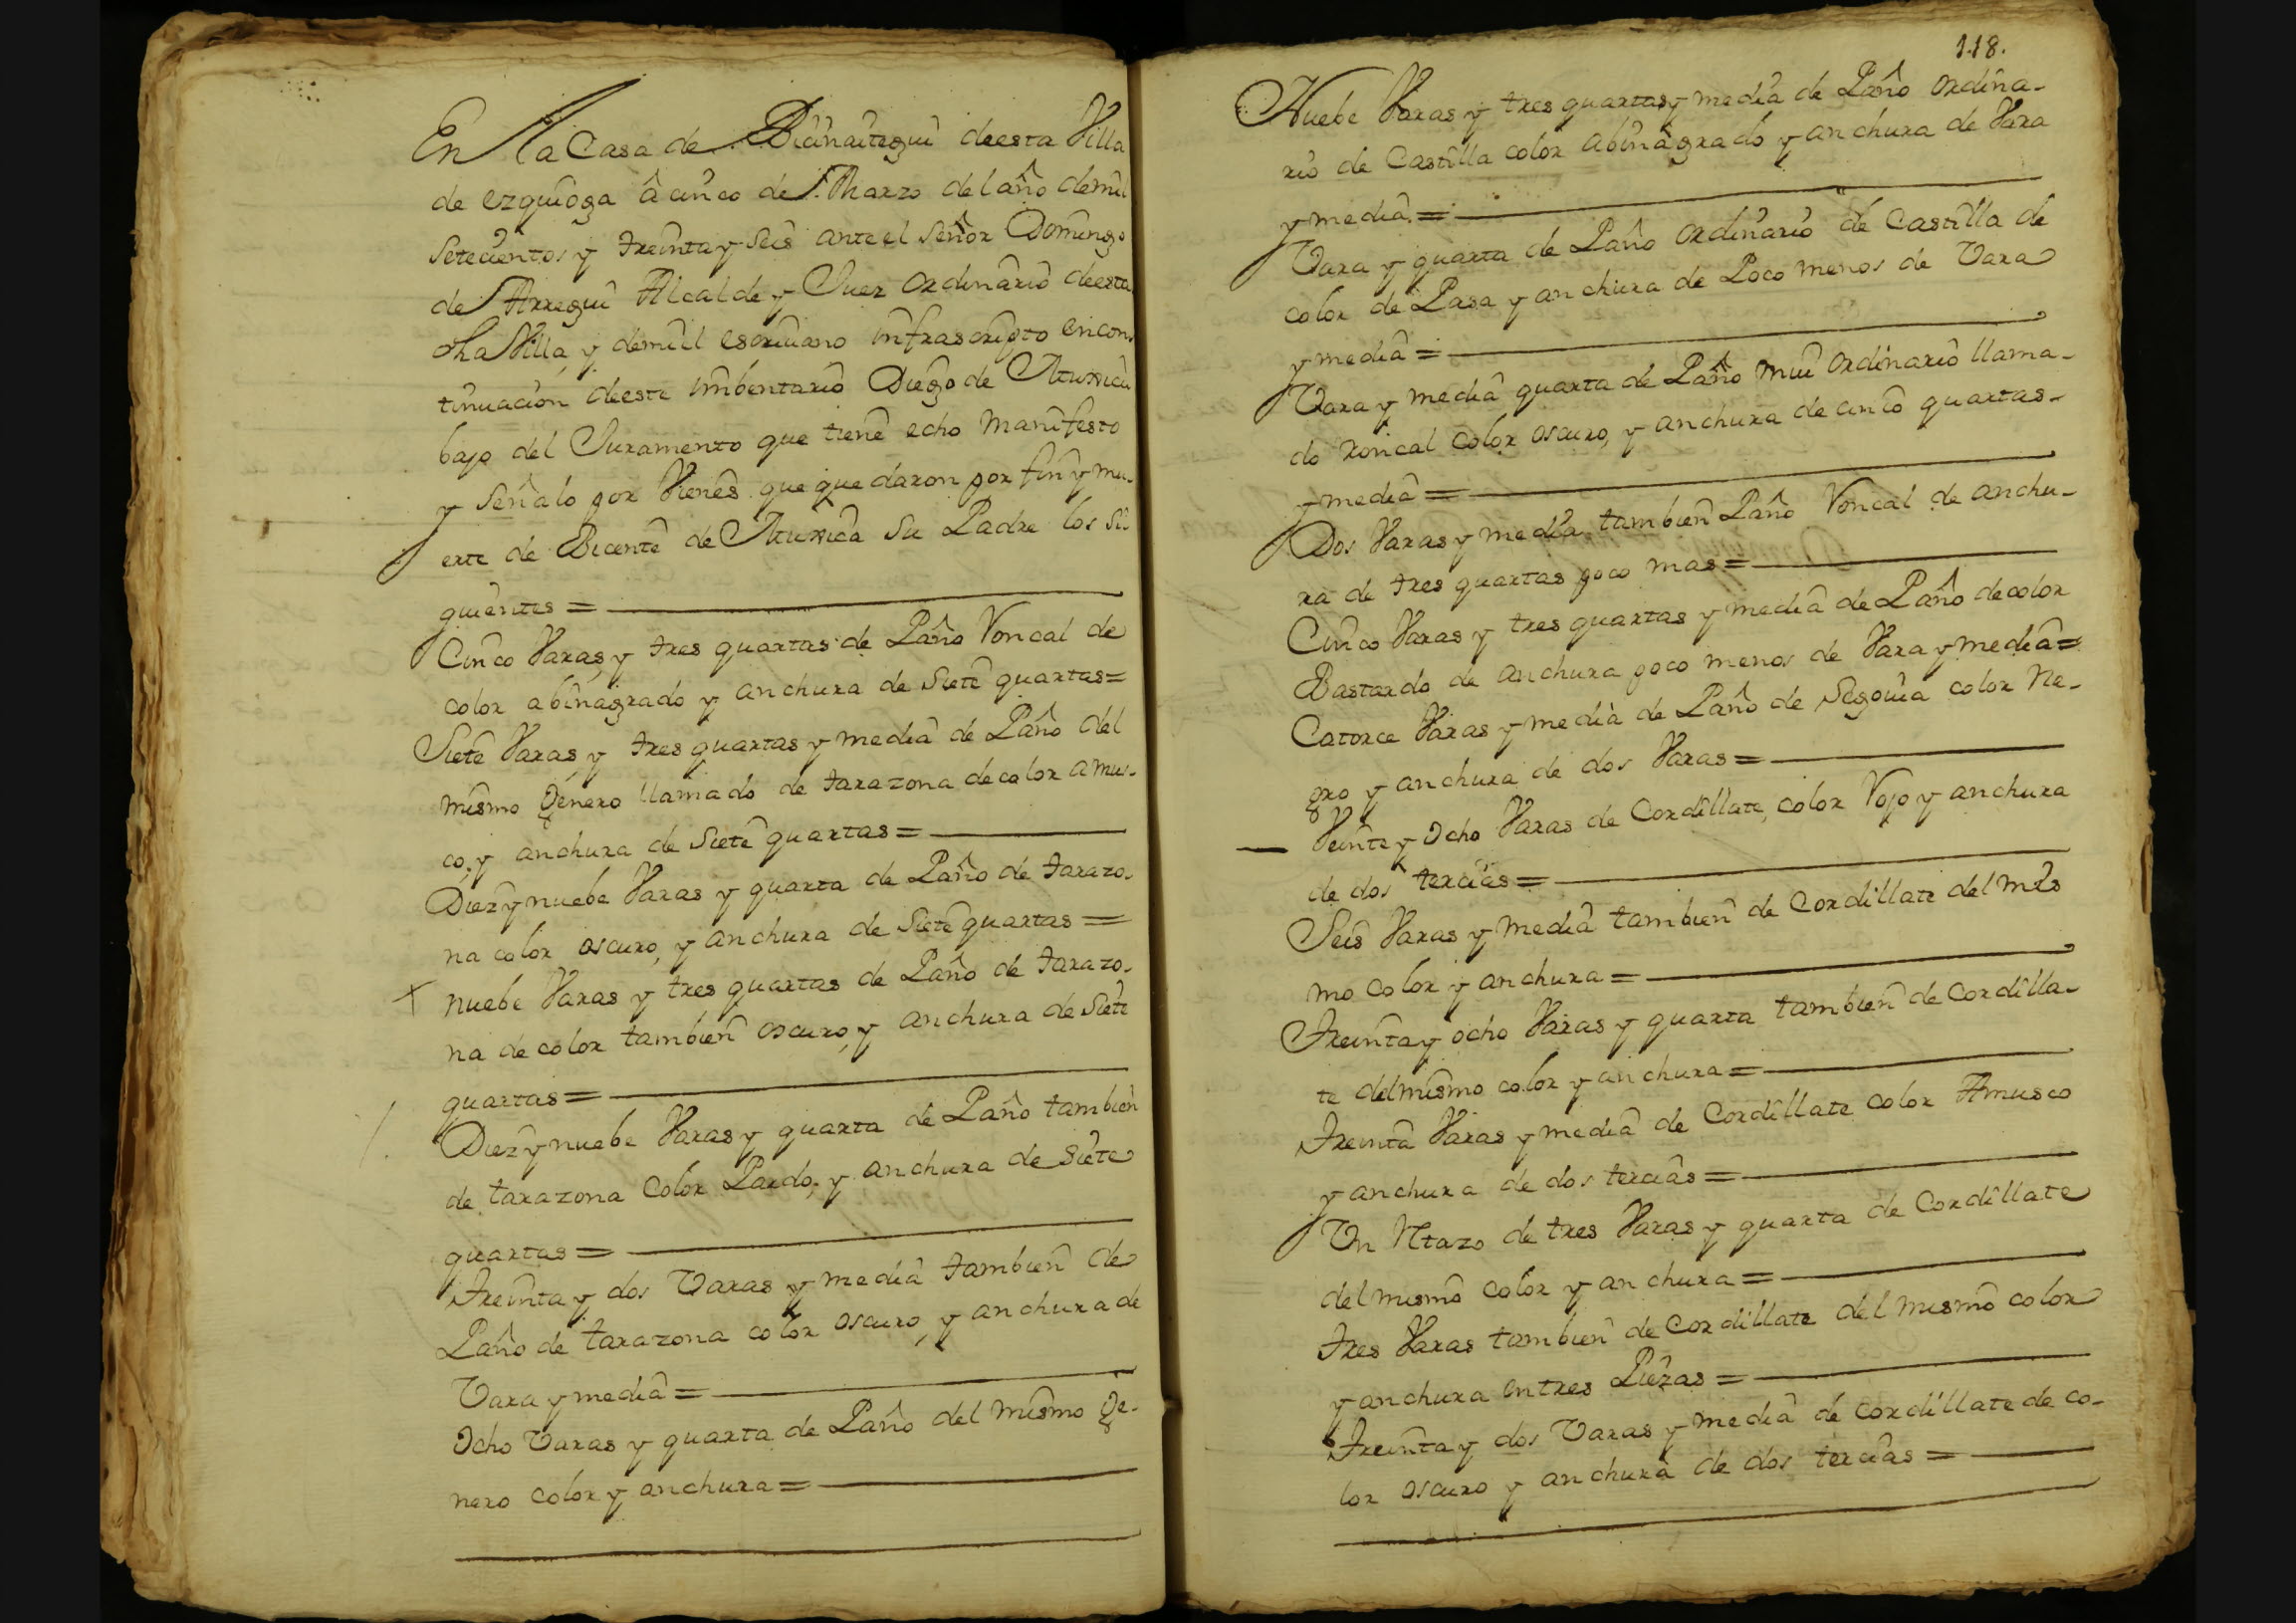 En la Casa de Bicinaitegui deesta Villa
de ezquioga â cinco de Marzo del año demil
Setecientos y treinta y Seis ante el Señor Domingo
de Arregui Alcalde y Juez ordinario deesta
dha Villa, y demi el escrivano infrascripto en con
tinuacion deeste imbentario Diego de
bajo del Juramento que tiene echo manifesto
y señalo por Vienes que quedaron por fin y mu-
erte de Bicente de su Padre los si-
guientes =
Cinco Varas y tres quartas de Paño Roncal de
color abinagrado y anchura de Siete quartas=
Siete Varas, y tres quartas y media de Paño del
mismo Genero llamado de tarazona decolor amus-
co, y anchura de Siete quartas=
Diez y nuebe Varas y quarta de Paño de tarazo-
na color oscuro, y anchura de Siete quartas =
+ nuebe Varas y tres quartas de Paño de tarazo-
na de color tambien oscuro, y anchura de Siete
quartas=
Diez y nuebe Varas y quarta de Paño tambien
de tarazona Color Pardo, y anchura de Siete
quartas =
Treinta y dos Varas y media tambien de
Paño de tarazona color oscuro, y anchura de
Vara y media =
Ocho Varas y quarta de Paño del mismo Ge-
nero color y anchura =
118.
Nuebe Varas y tres quartas y media de Paño ordina-
rio de Castilla color abinagrado y anchura de Vara
y media =
Vara y quarta de Paño ordinario de Castilla de
color de Pasa y anchura de Poco menos de Vara
y media =
Vara y media quarta de Paño mui ordinario llama-
do roncal color oscuro, y anchura de cinco quartas-
y media =
Dos Varas y media tambien Paño Roncal de anchu-
ra de tres quartas poco mas =
Cinco Varas y tres quartas y media de Paño decolor
Bastardo de anchura poco menos de Vara y media=
Catorce Varas y media de Paño de Segovia color Ne-
gro y anchura de dos Varas =
Veinte y Ocho Varas de Cordillate, color Rojo y anchura
de dos tercias =
Seis Varas y media tambien de Cordillate del mis
mo Color y anchura =
Treinta y ocho Varas y quarta tambien de Cordilla-
te delmismo color y anchura =
Treinta Varas y media de Cordillate color Amusco
y anchura de dos tercias =
Un Rtazo de tres Varas y quarta de Cordillate
del mismo color y anchura =
Tres Varas tambien de Cordillate del mismo color
y anchura en tres Piezas =
Treinta y dos Varas y media de cordillate de co-
lor oscuro y anchura de dos tercias =